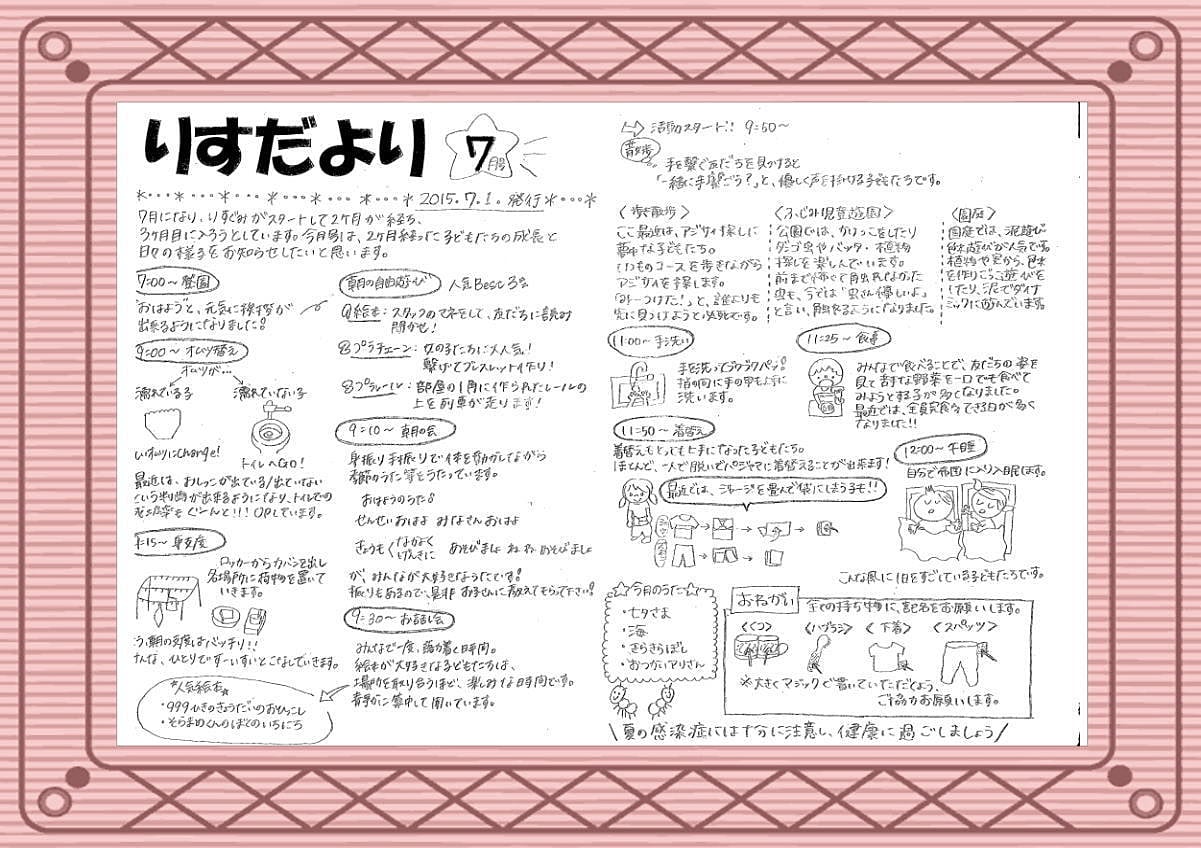 りすだより 7月号
2015.7.1. 発行
7月になり、りすぐみがスタートして2ヶ月が経ち、
3ヶ月目に入ろうとしています。今月号は、2ヶ月経った子どもたちの成長と
日々の様子をお知らせしたいと思います。
7:00〜 登園
"おはよう"と、元気に挨拶が
出来るようになりました!
9:00〜 オムツ替え
オムツが…
濡れている子 濡れていない子
いオムツにchange!
トイレへGO!
最近は、おしっこが出ている/出ていない
という判断が出来るようになり、トイレでの
成功率もぐ〜んと!!UPしています。
:15〜 身支度
ロッカーからカバンを出し
各場所に荷物を置いて
いきます。
う、朝の支度はバッチリ!!
んな、ひとりですーいすいとこなしていきます。
人気絵本
・999ひきのきょうだいのおひっこし
・そらまめくんのぼくのいちにち
朝の自由遊び 人気Best3
①絵本:スタッフのマネをして、友だちに読み
聞かせ!
②プラチェーン:女の子たちに大人気!
繋げてブレスレット作り!
③プラレール:部屋の1角に作られたレールの
上を列車が走ります!
9:10〜 朝の会
身振り手振りで体を動かしながら
季節のうた等をうたっています。
おはようのうた
せんせいおはよ みなさんおはよ
きょうも なかよく げんきに あそびましょ ねぇねぇ あそびましょ
が、みんなが大好きなうたです!
振りもあるので、是非お子さんに教えてもらって下さい!
9:30〜 お話し会
みんなで一度、落ち着く時間。
絵本が大好きな子どもたちは、
場所を取り合うほど、楽しみな時間です。
集中して聞いています。
活動スタート!! 9:50〜
散歩
手を繋ぐ友だちを見かけると
「一緒に手繋ごう?」と、優しく声を掛ける子どもたちです。
〈歩き散歩〉
ここ最近は、アジサイ探しに
夢中な子どもたち。
いつものコースを歩きながら
アジサイを探します。
「みーつけた!」と、誰よりも
先に見つけようと必死です。
〈ふじみ児童遊園〉
公園では、かけっこをしたり
ダンゴ虫やバッタ・植物
探しを楽しんでいます。
前まで怖くて触れなかった
虫も、今では"虫さん優しいよ"
と言い、触れるようになりました。
〈園庭〉
園庭では、泥遊び
色水遊びが人気です。
植物や実から、色水
を作りごっこ遊びを
したり、泥でダイナ
ミックに遊んでいます。
11:00〜 手洗い
手を洗ってブクブクパッ!
指の間に手の甲も上手に
洗います。
11:25〜 食事
みんなで食べることで、友だちの姿を
見て苦手な野菜を一口でも食べて
みようとする子が多くなりました。
最近では、全員完食できる日が多く
なりました!!
11:50〜 着替え
着替えもとっても上手になった子どもたち。
ほとんど、一人で脱いでパジャマに着替えることが出来ます!
最近では、パジャマを畳んで袋にしまう子も!!
12:00〜 午睡
自分で布団に入り入眠します。
こんな風に1日をすごしている子どもたちです。
今月のうた
・七夕さま
・海
・きらきらぼし
・おつかいアリさん
おねがい
全ての持ち物に、記名をお願いします。
〈くつ〉 〈ハブラシ〉 〈下着〉 〈スパッツ〉
※大きくマジックで書いていただくよう、
ご協力お願いします。
夏の感染症には十分に注意し、健康に過ごしましょう